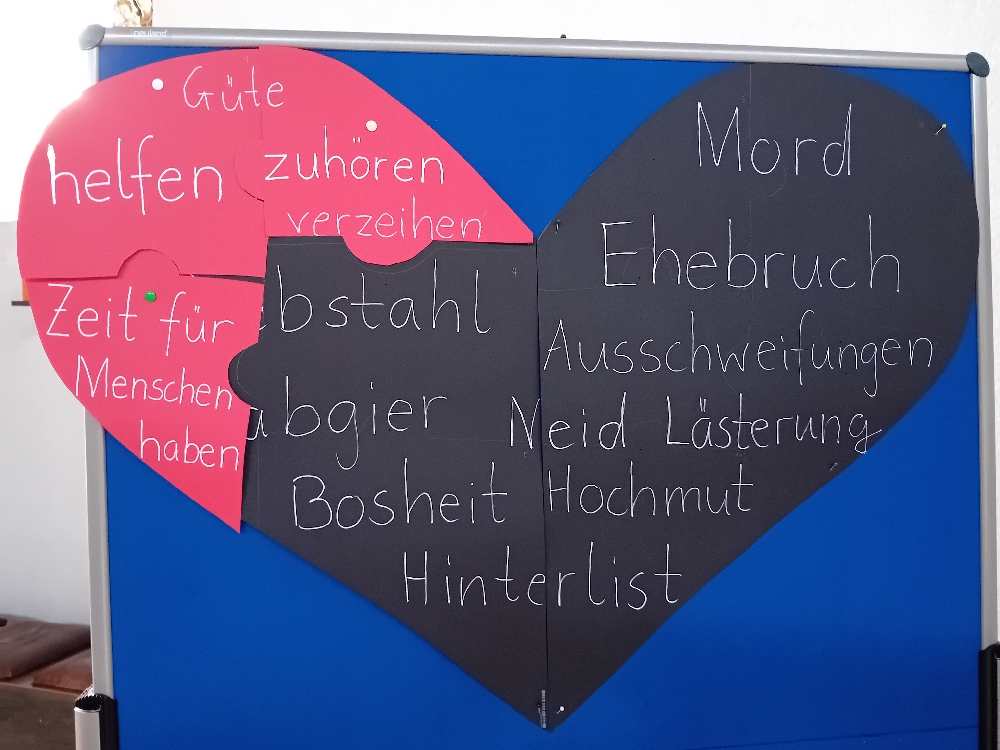 neuland
Güte
helfen
zuhören
verzeihen
Zeit für
Menschen
haben
Mord
Ehebruch
bstahl
Ausschweifungen
abgier
Neid Lästerung
Bosheit Hochmut
Hinterlist